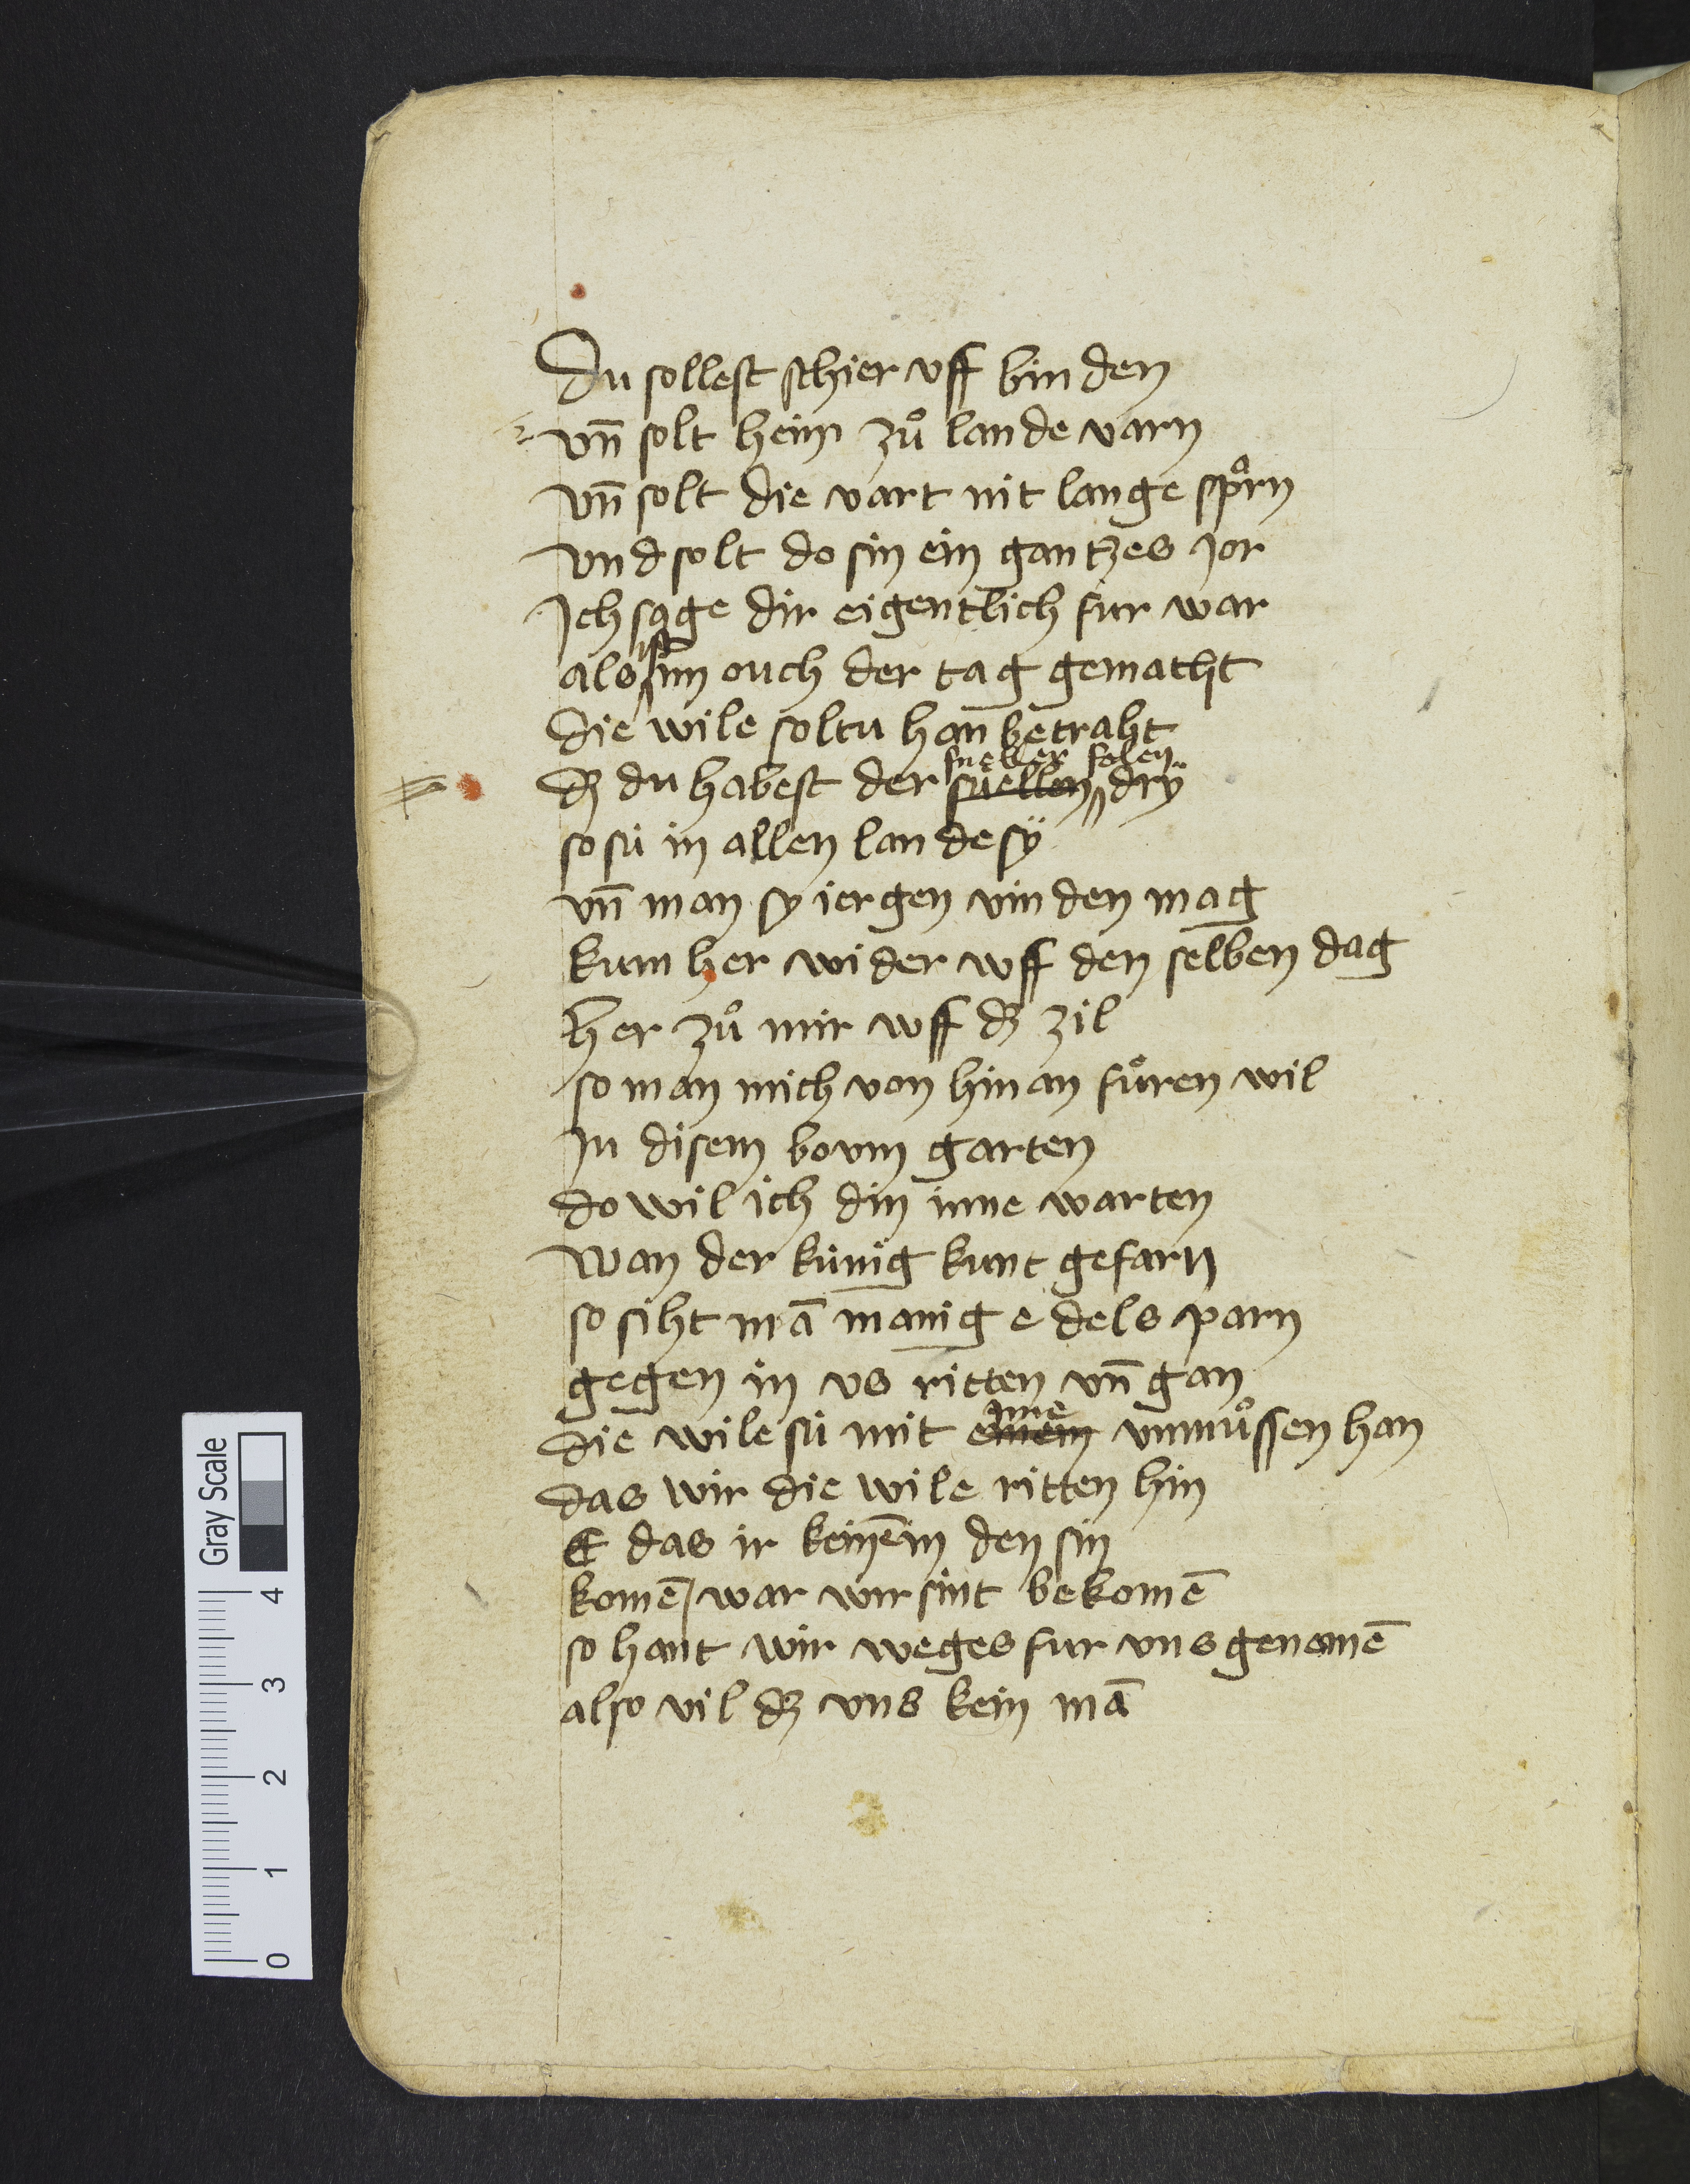 Du sollest schier vff binden
vn̄ solt heim zuͦ lande varn
vn̄ solt die vart nit lange spͣrn
vnd solt do sin ein gantzes jor
Ich sage dir eigentlich fur war
also ist im ouch der tag gemacht
die wile soltu han betraht
dʒ du habest der sneller folen dry̋
so sü in allen lande sÿ
vn̄ man sy iergen vinden mag
kum her wider wff den selben dag
her zuͦ mir wff dʒ zil
so man mich von hinan fuͤren wil
In disem boum garten
do wil ich din inne warten
wan der künig kunt gefarn
so siht mā manig edels parn
gegen in vs ritten vn̄ gan
die wile sü mit ime vnmuͦssen han
das wir die wile ritten hin
E das ir keinem in den sin
komē / war wir sint bekomē
so hant wir weges fur vns genomē
also vil dʒ vns kein mā
Gray Scale
4
3
2
1
0